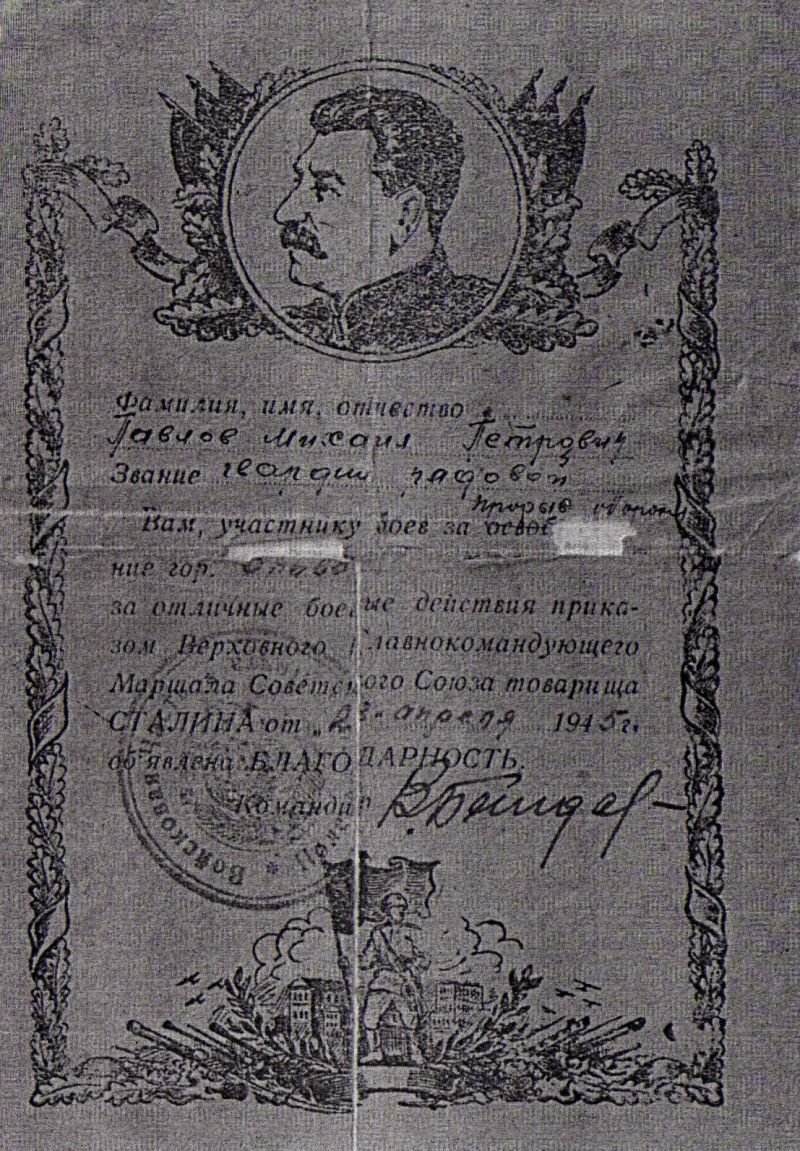 Фамилия, имя, отчество
Павлов Михаил Петрович
Звание гвардии рядовой
прорыв обороны
Вам, участнику боев за освоб
ние гор.
за отличные боевые действия прика-
зом Верховного Главнокомандующего
Маршала Советского Союза товарища
СТАЛИНА от „23" апреля 1945 г.
об'явлена БЛАГОДАРНОСТЬ.
Командир
Войсковая